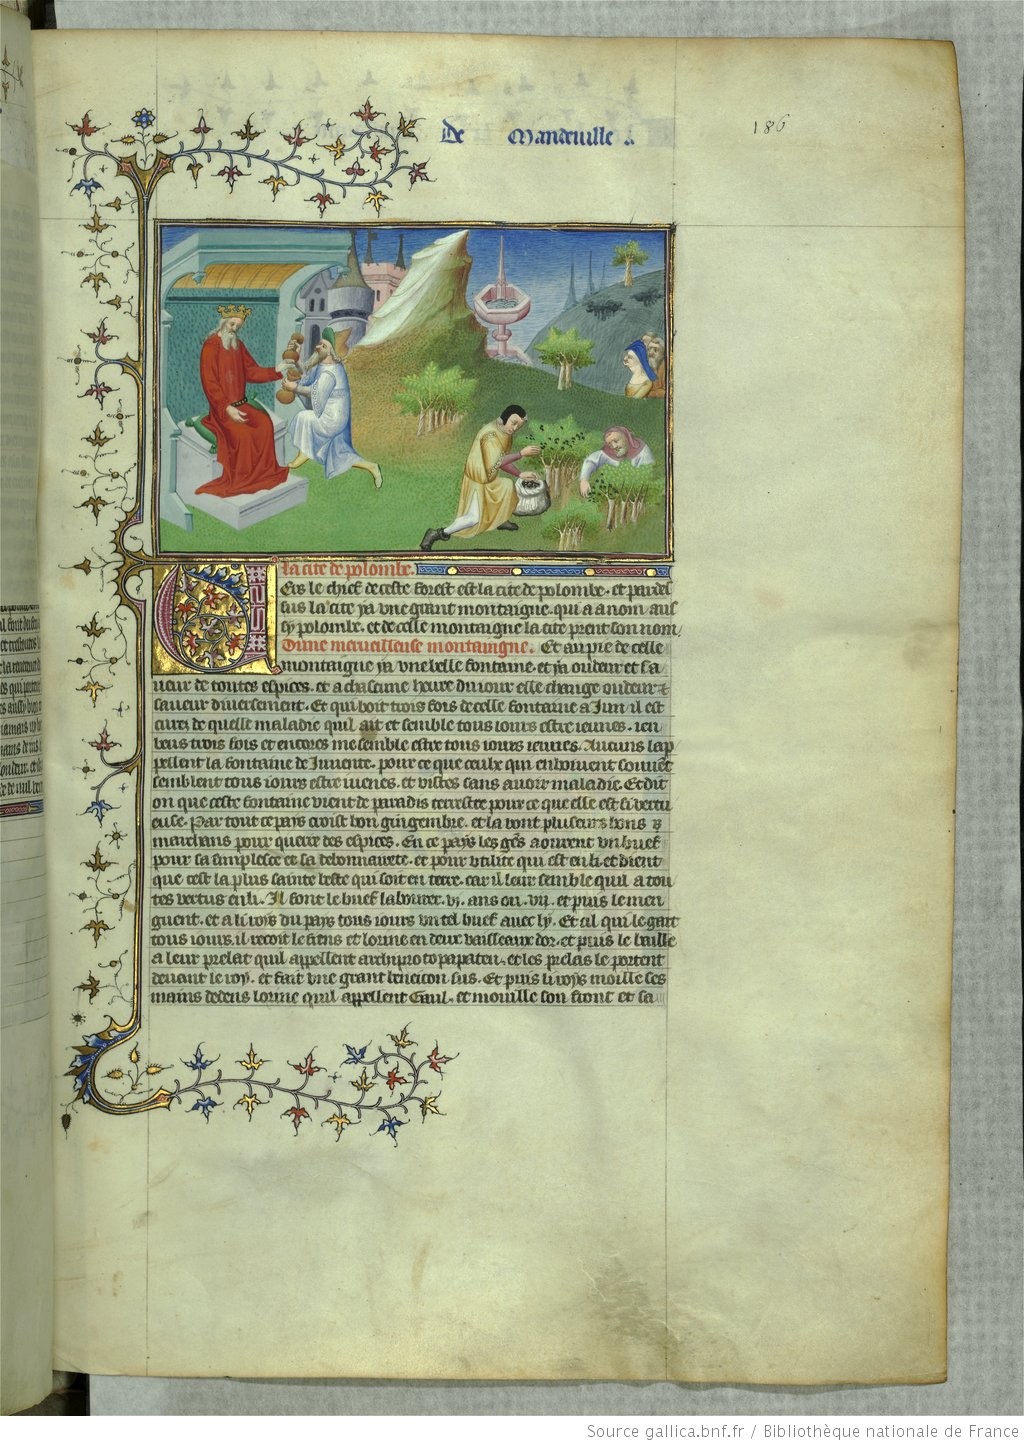 De Mandeuille
186
La cite de polombe.
Uers le chief de ceste forest est la cite de polombe. et par des
sus la cite ya vne grant montaigne. qui a a nom aus
sy polombe. et de celle montaigne la cite prent son nom
Dune merueilleuse montaingne. Et au pie de celle
montaigne ya vne belle fontaine. et ya oudeur et sa
ueur de toutes espices. et a chascune heure du iour elle change oudeur et
saueur diuersement. Et qui boit trois fois de celle fontaine a Jun il est
curez de quelle maladie quil ait et semble tous iours estre ieunes. ien
beus trois fois et encores me semble estre tous iours ieunes. Aucuns lap
pellent la fontaine de Juuente. pour ce que ceulx qui en boiuent souuent
semblent tous iours estre iuenes. et vistes sans auoir maladie. Et dit
on que ceste fontaine vient de paradis terrestre pour ce que elle est si vertu
euse. Par tout ce pays croist bon gingembre. et la vont pluseurs bons
marchans pour querre des espices. En ce pays les gens aourent vn buef
pour sa simplesce et sa debonnairete. et pour vtilite qui est en li. et dient
que cest la plus sainte beste qui soit en terre. car il leur semble quil a tou
tes vertus en li. Il font le buef labourer. vj. ans ou. vij. et puis le men
guent. et a li roys du pays tous iours vn tel buef auec ly. Et cil qui le gart
tous iours. il recoit le fiens et lorine en deux vaisseaux dor. et puis le baille
a leur prelat quil appellent archiproto papaten. et les prelas le portent
deuant le roy. et fait vne grant beneicon sus. Et puis li roys moille ses
mains dedens lorine quil appellent Gaul. et mouille son front et sa
Source gallica.bnf.fr / Bibliothèque nationale de France